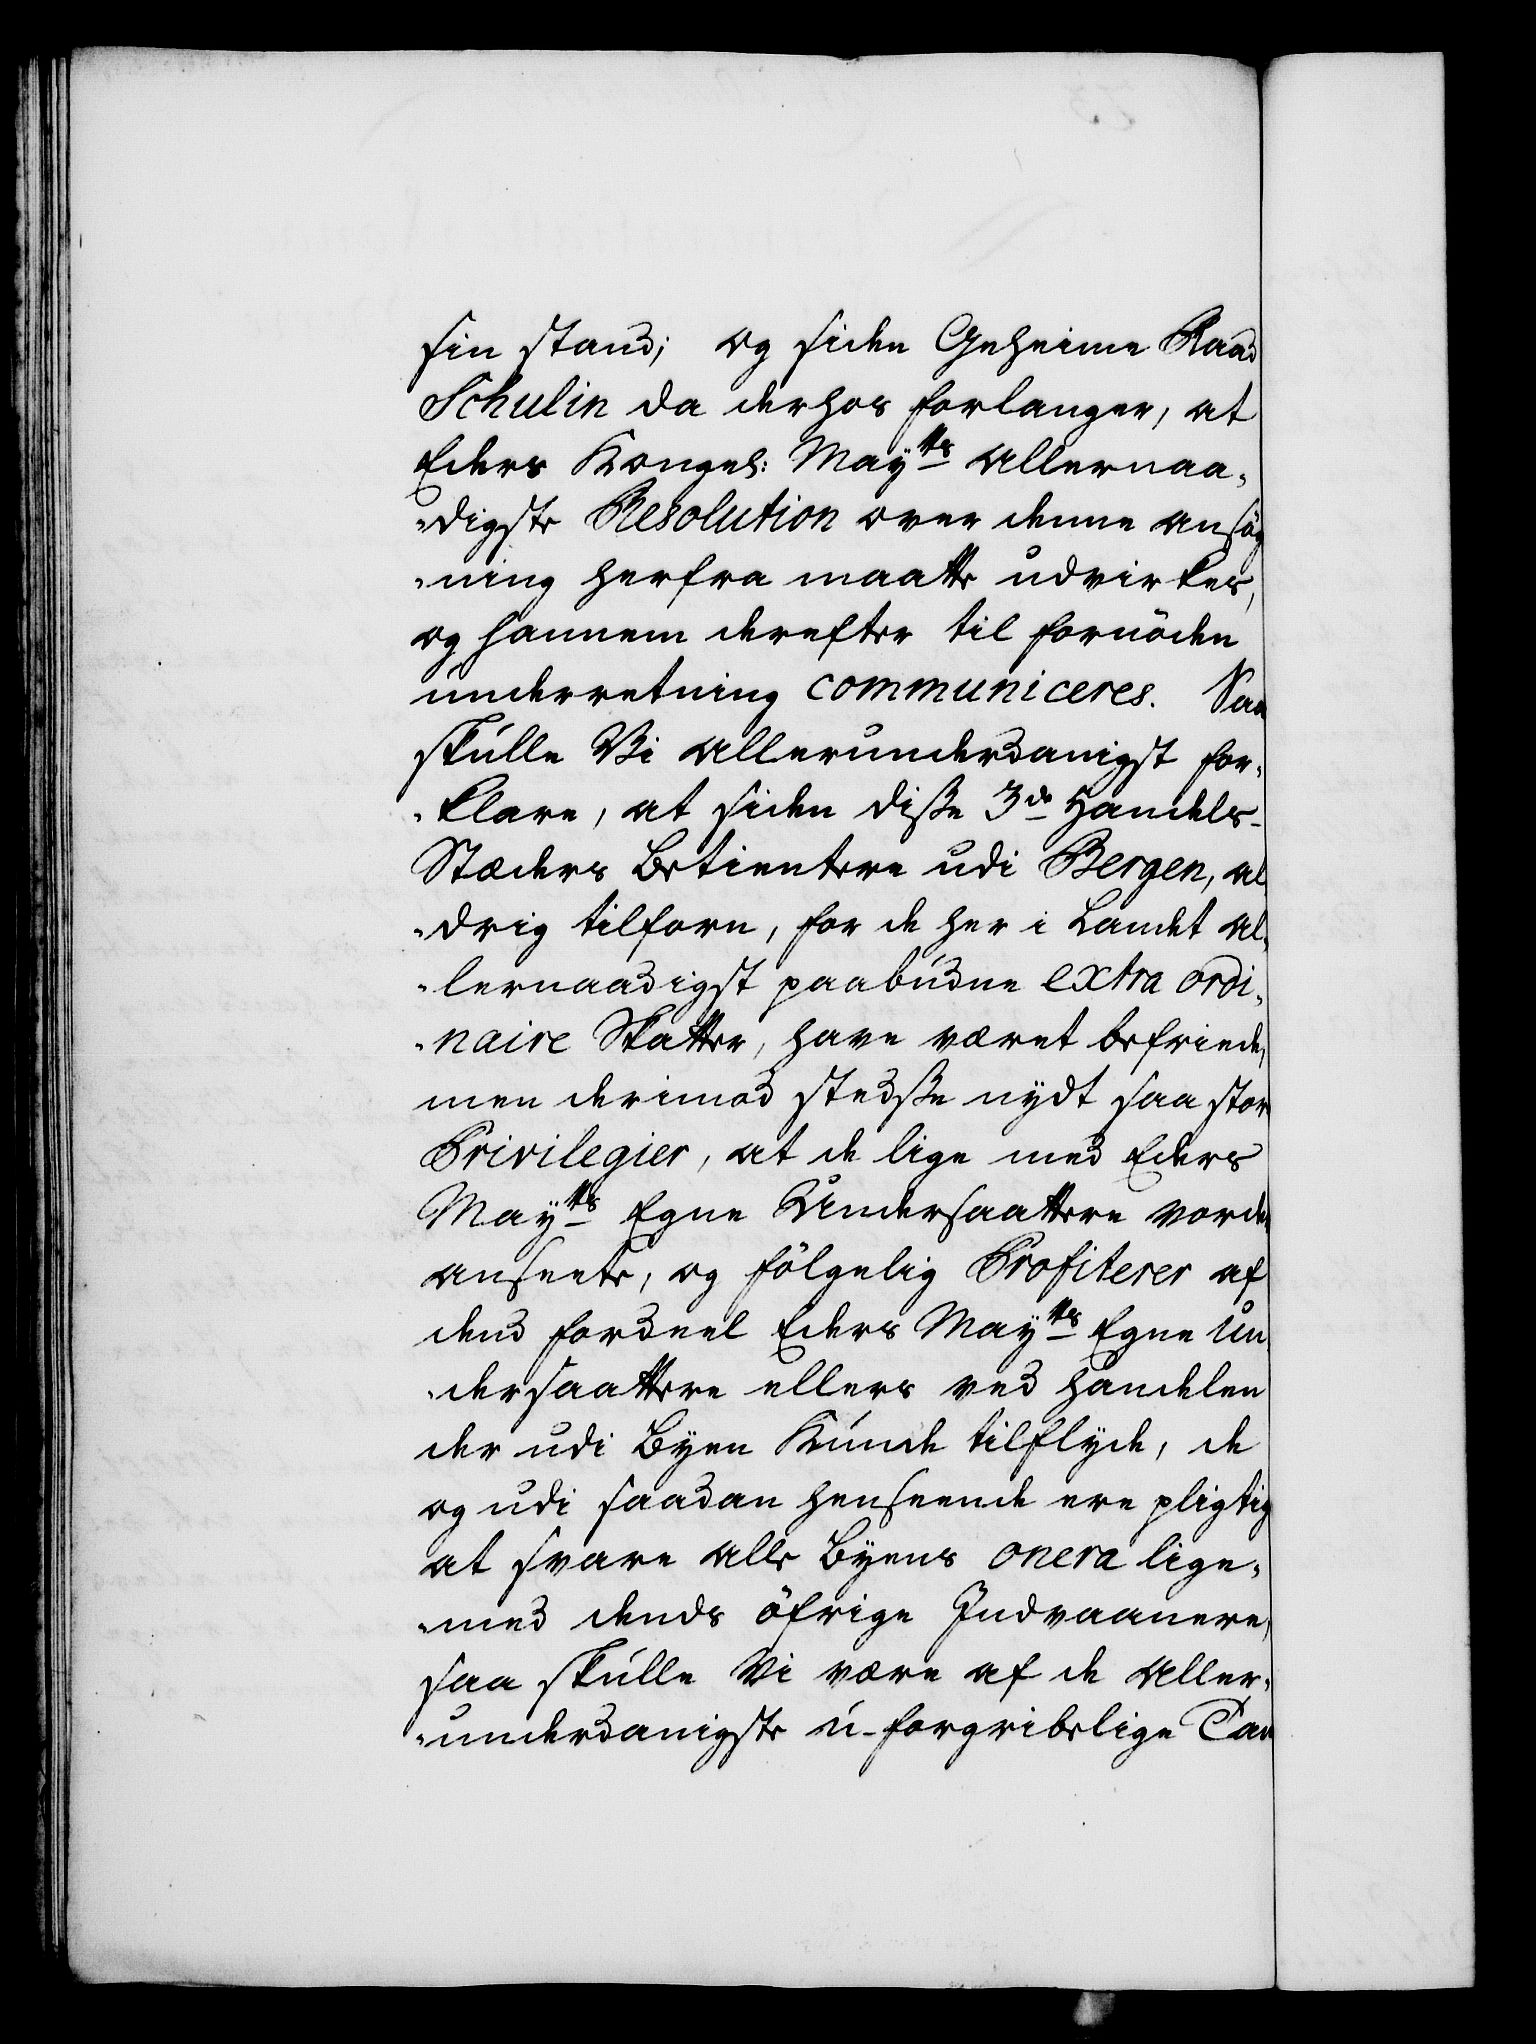 sin stand; og siden Geheime Raad
Schulin da derhos forlanger, at
Eders Kongel: Mayᵗᵗˢ allernaa-
-digste Resolution over denne ansög
-ning herfra maatte udvirkes,
og hannem derefter til fornöden
underretning communiceres. Saa
skulle Vi allerunderdanigst for-
-klare, at siden diße 3ᵈᵉ Handels-
Stæders betientere udi Bergen, al
-drig tilforn, for de her i Landet al-
-lernaadigst paabudne extra ordi-
-naire Skatter, have været befriede,
men derimod stedße nydt saa store
Privilegier, at de lige med Eders
Mayᵗᵗˢ Egne Undersaattere vorde
anseete, og fölgelig Profiterer af
dend fordeel Eders Mayᵗᵗˢ Egne Un
-dersaattere ellers ved handelen
der udi Byen Kunde tilflyde, de
og udi saadan henseende ere pligtig
at svare alle Byens onera lige-
-med dends öfrige Indvaanere,
saa skulle Vi være af de aller-
-underdanigste u-forgribelige Tan